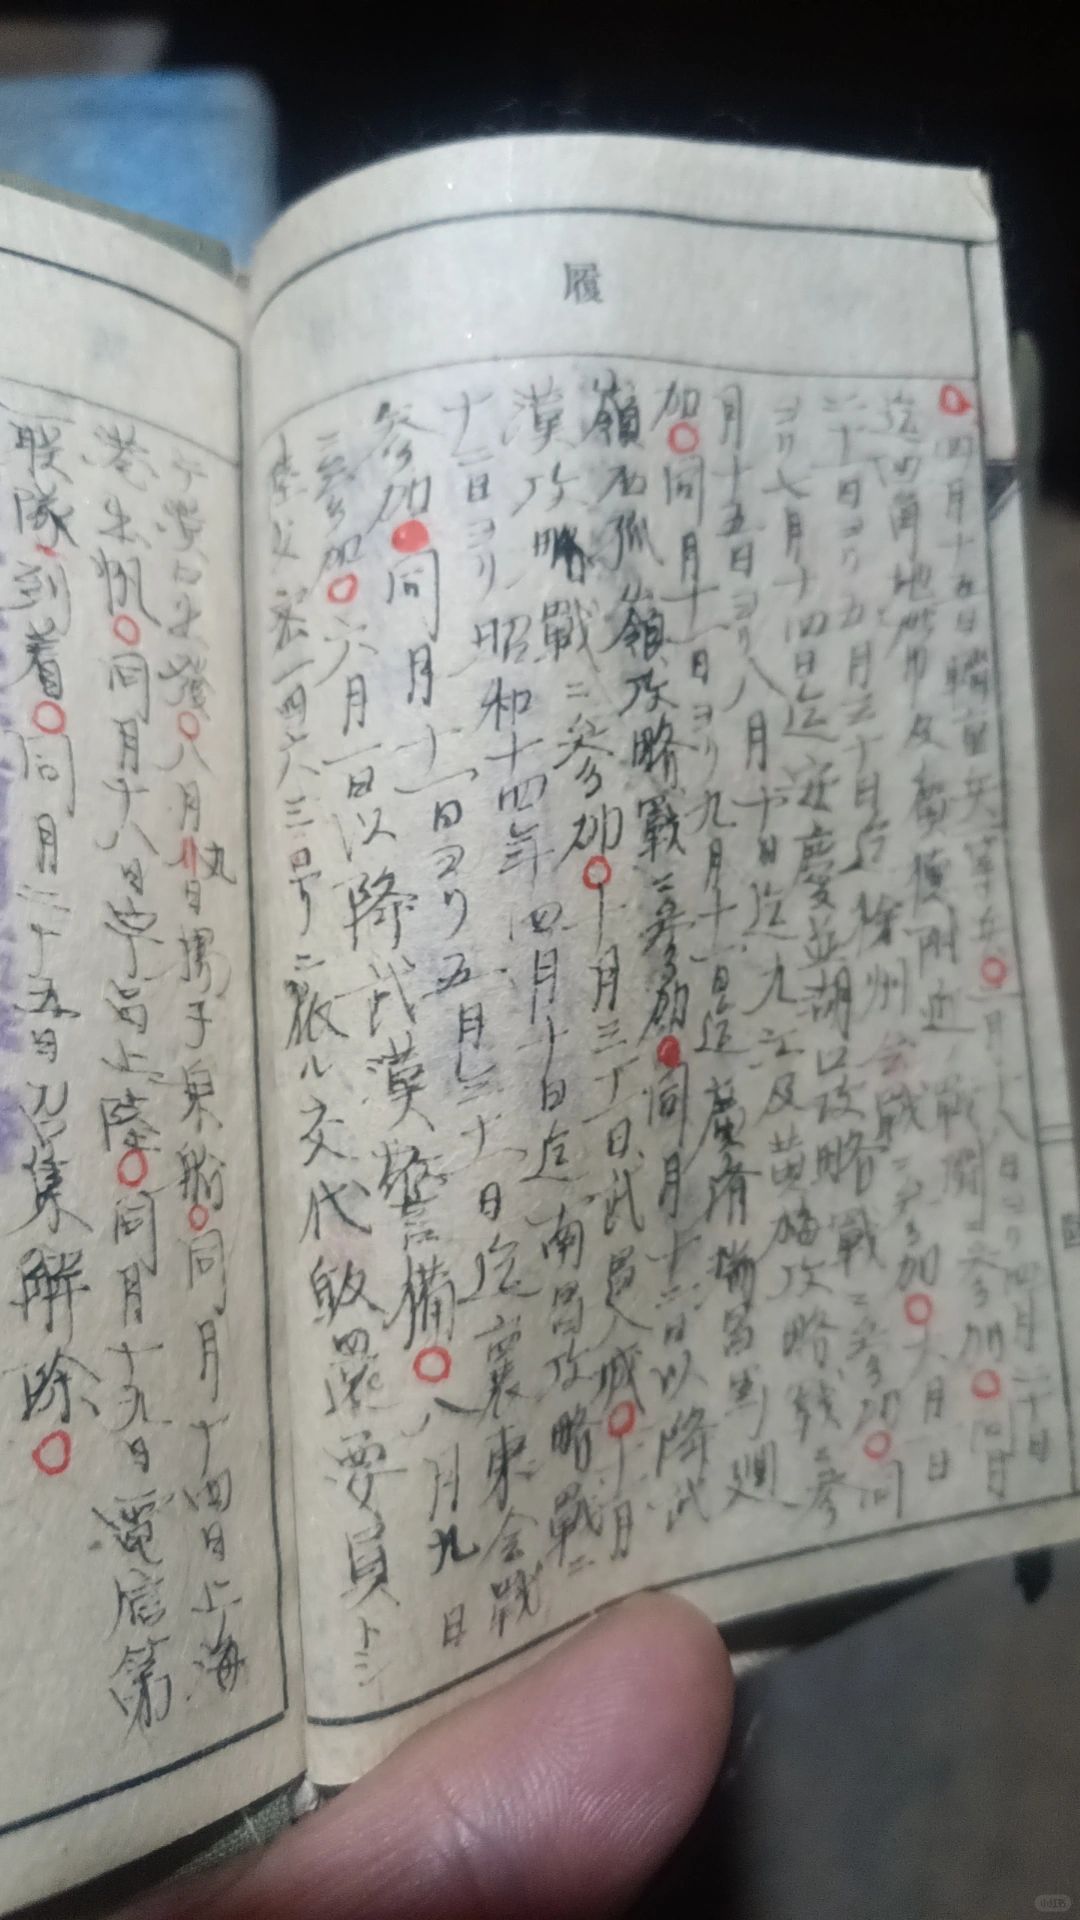 履
四月十五日輜重兵一等兵 一月十八日ヨリ四月二十日
迄 地附近 戦闘ニ参加 四月
二十日ヨリ五月三十日迄徐州会戦ニ参加 六月 日
ヨリ七月十四日迄安慶並湖口攻略戦ニ参加 同
月十五日ヨリ八月 十日迄九江及黄梅攻略戦ニ参
加 同月十一日ヨリ九月十一日迄廣済瑞昌馬廻
嶺西孤嶺攻略戦ニ参加 同月十二日以降武
漢攻略戦ニ参加 十月三十日武昌入城 十月
十二日ヨリ昭和十四年四月十日迄南昌攻略戦ニ
参加 同月十一日ヨリ五月三十一日迄襄東会戦
ニ参加 六月一日以降武漢警備 八月九日
陸支密一四六三号ニ依ル交代 要員トシ
テ 出発 八月九日揚子 乗船 同月十四日上海
港出帆 同月十八日宇品上陸 同月十九日電信第
聯隊到着 同月二十五日召集解除